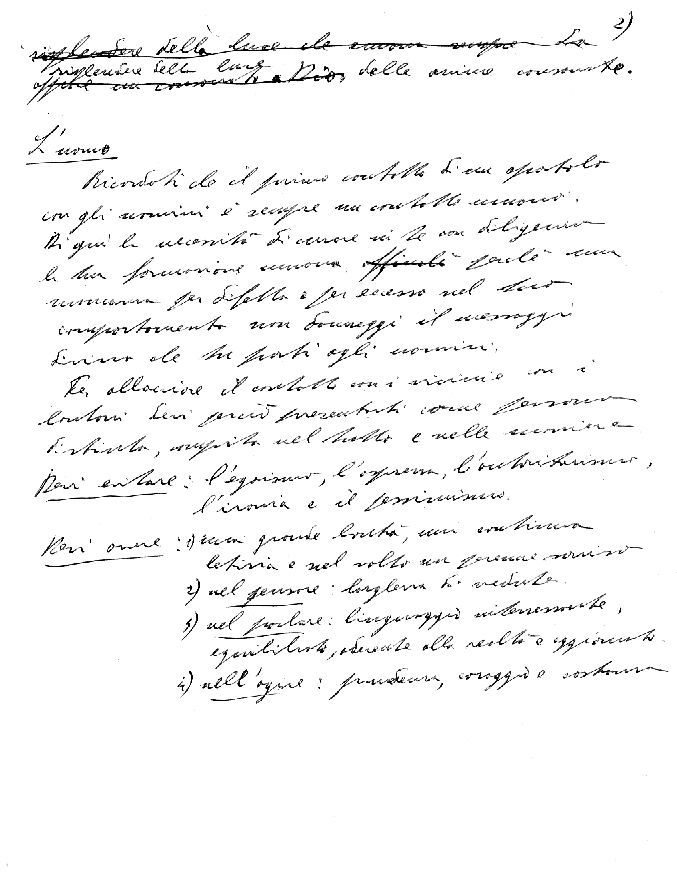 2)
risplendere della luce che emana sempre La
risplendere della luce
affine un consacrato a Dio, delle anime consacrate.
L'uomo
Ricordati che il primo contatto di un apostolo
con gli uomini è sempre un contatto umano.
Di qui la necessità di curare in te con diligenza
la tua formazione umana perché una
mancanza per difetto o per eccesso nel tuo
comportamento non danneggi il messaggio
divino che tu porti agli uomini.
Per allacciare il contatto con i vicini e con i
lontani devi perciò presentarti come persona
distinta, compita nel tutto e nelle maniere
Devi evitare: l'egoismo, l'asprezza, l'autoritarismo,
l'ironia e il pessimismo.
Devi avere: 1) una grande bontà, una continua
letizia e nel volto un perenne sorriso
2) nel pensare: larghezza di vedute.
3) nel parlare: linguaggio interessante,
equilibrato, aderente alla realtà e aggiornato.
4) nell'agire: prudenza, coraggio e costanza